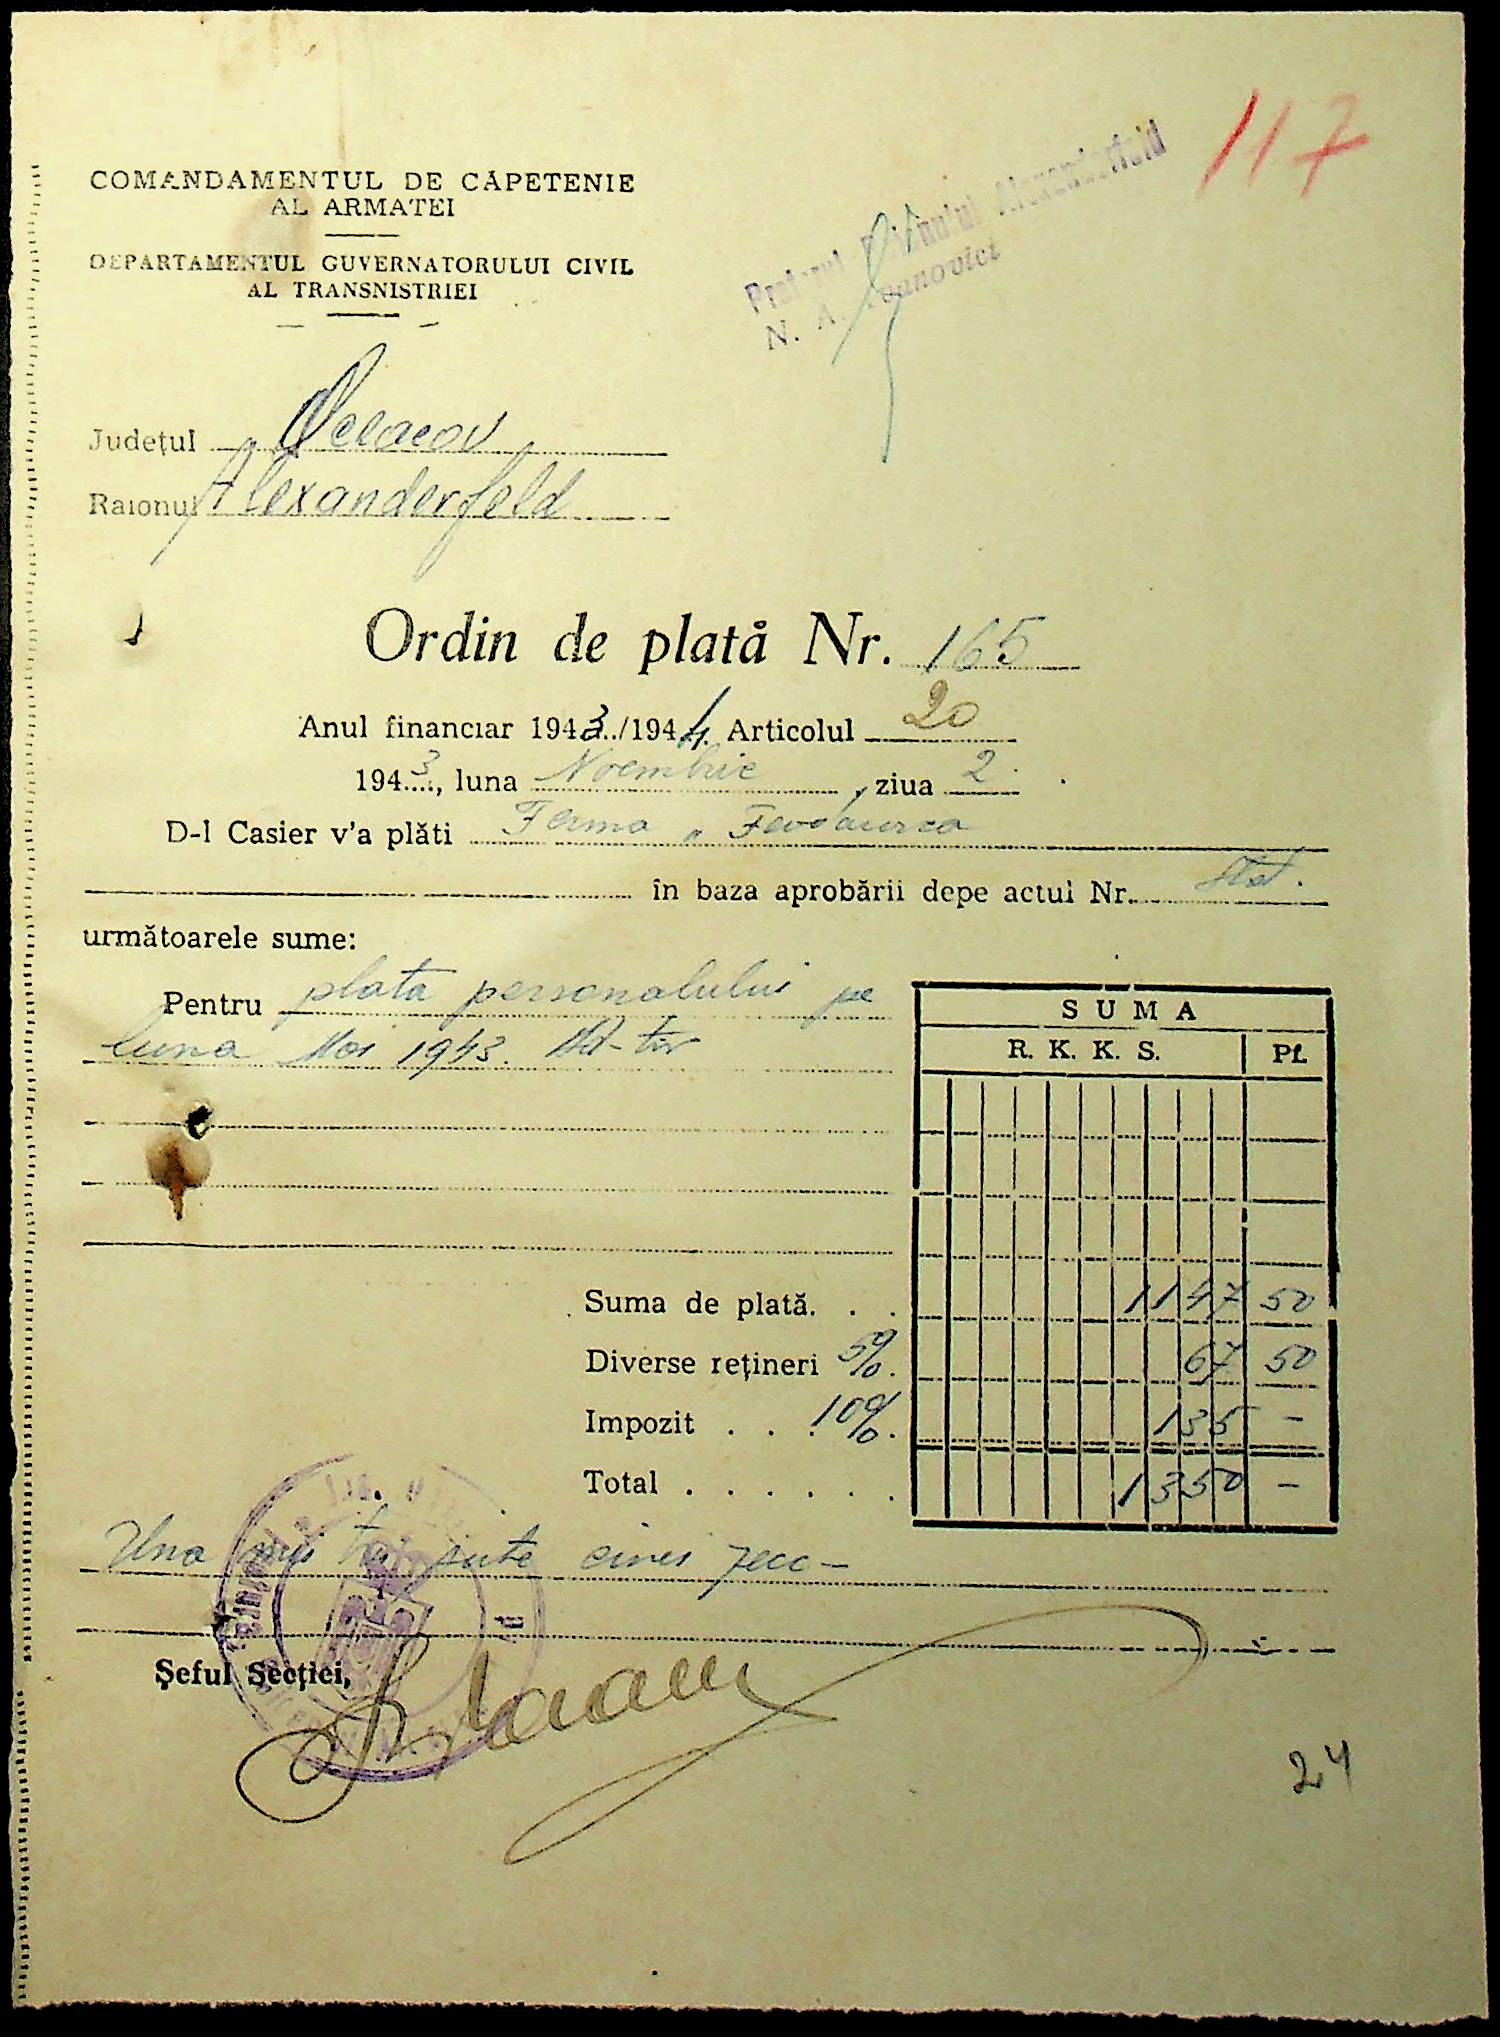 117
Pretorul Raionului Alexanderfeld
N. A. Ivanovici
COMANDAMENTUL DE CĂPETENIE
AL ARMATEI
DEPARTAMENTUL GUVERNATORULUI CIVIL
AL TRANSNISTRIEI
Județul Oceacov
Raionul Alexanderfeld
Ordin de plată Nr. 165
Anul financiar 1943../1944. Articolul 20
194.3.., luna Noembrie, ziua 2
D-l Casier v'a plăti Ferma „
în baza aprobării depe actul Nr. Stat.
următoarele sume:
Pentru plata personalului pe
luna Mai 1943.
SUMA
R. K. K. S. Pf.
Suma de plată. . . 1147 50
Diverse rețineri 5%. 67 50
Impozit . . . 10%. 135 –
Total . . . . . . . 1350 –
Una mii trei sute cinci zeci –
Șeful Secției,
24